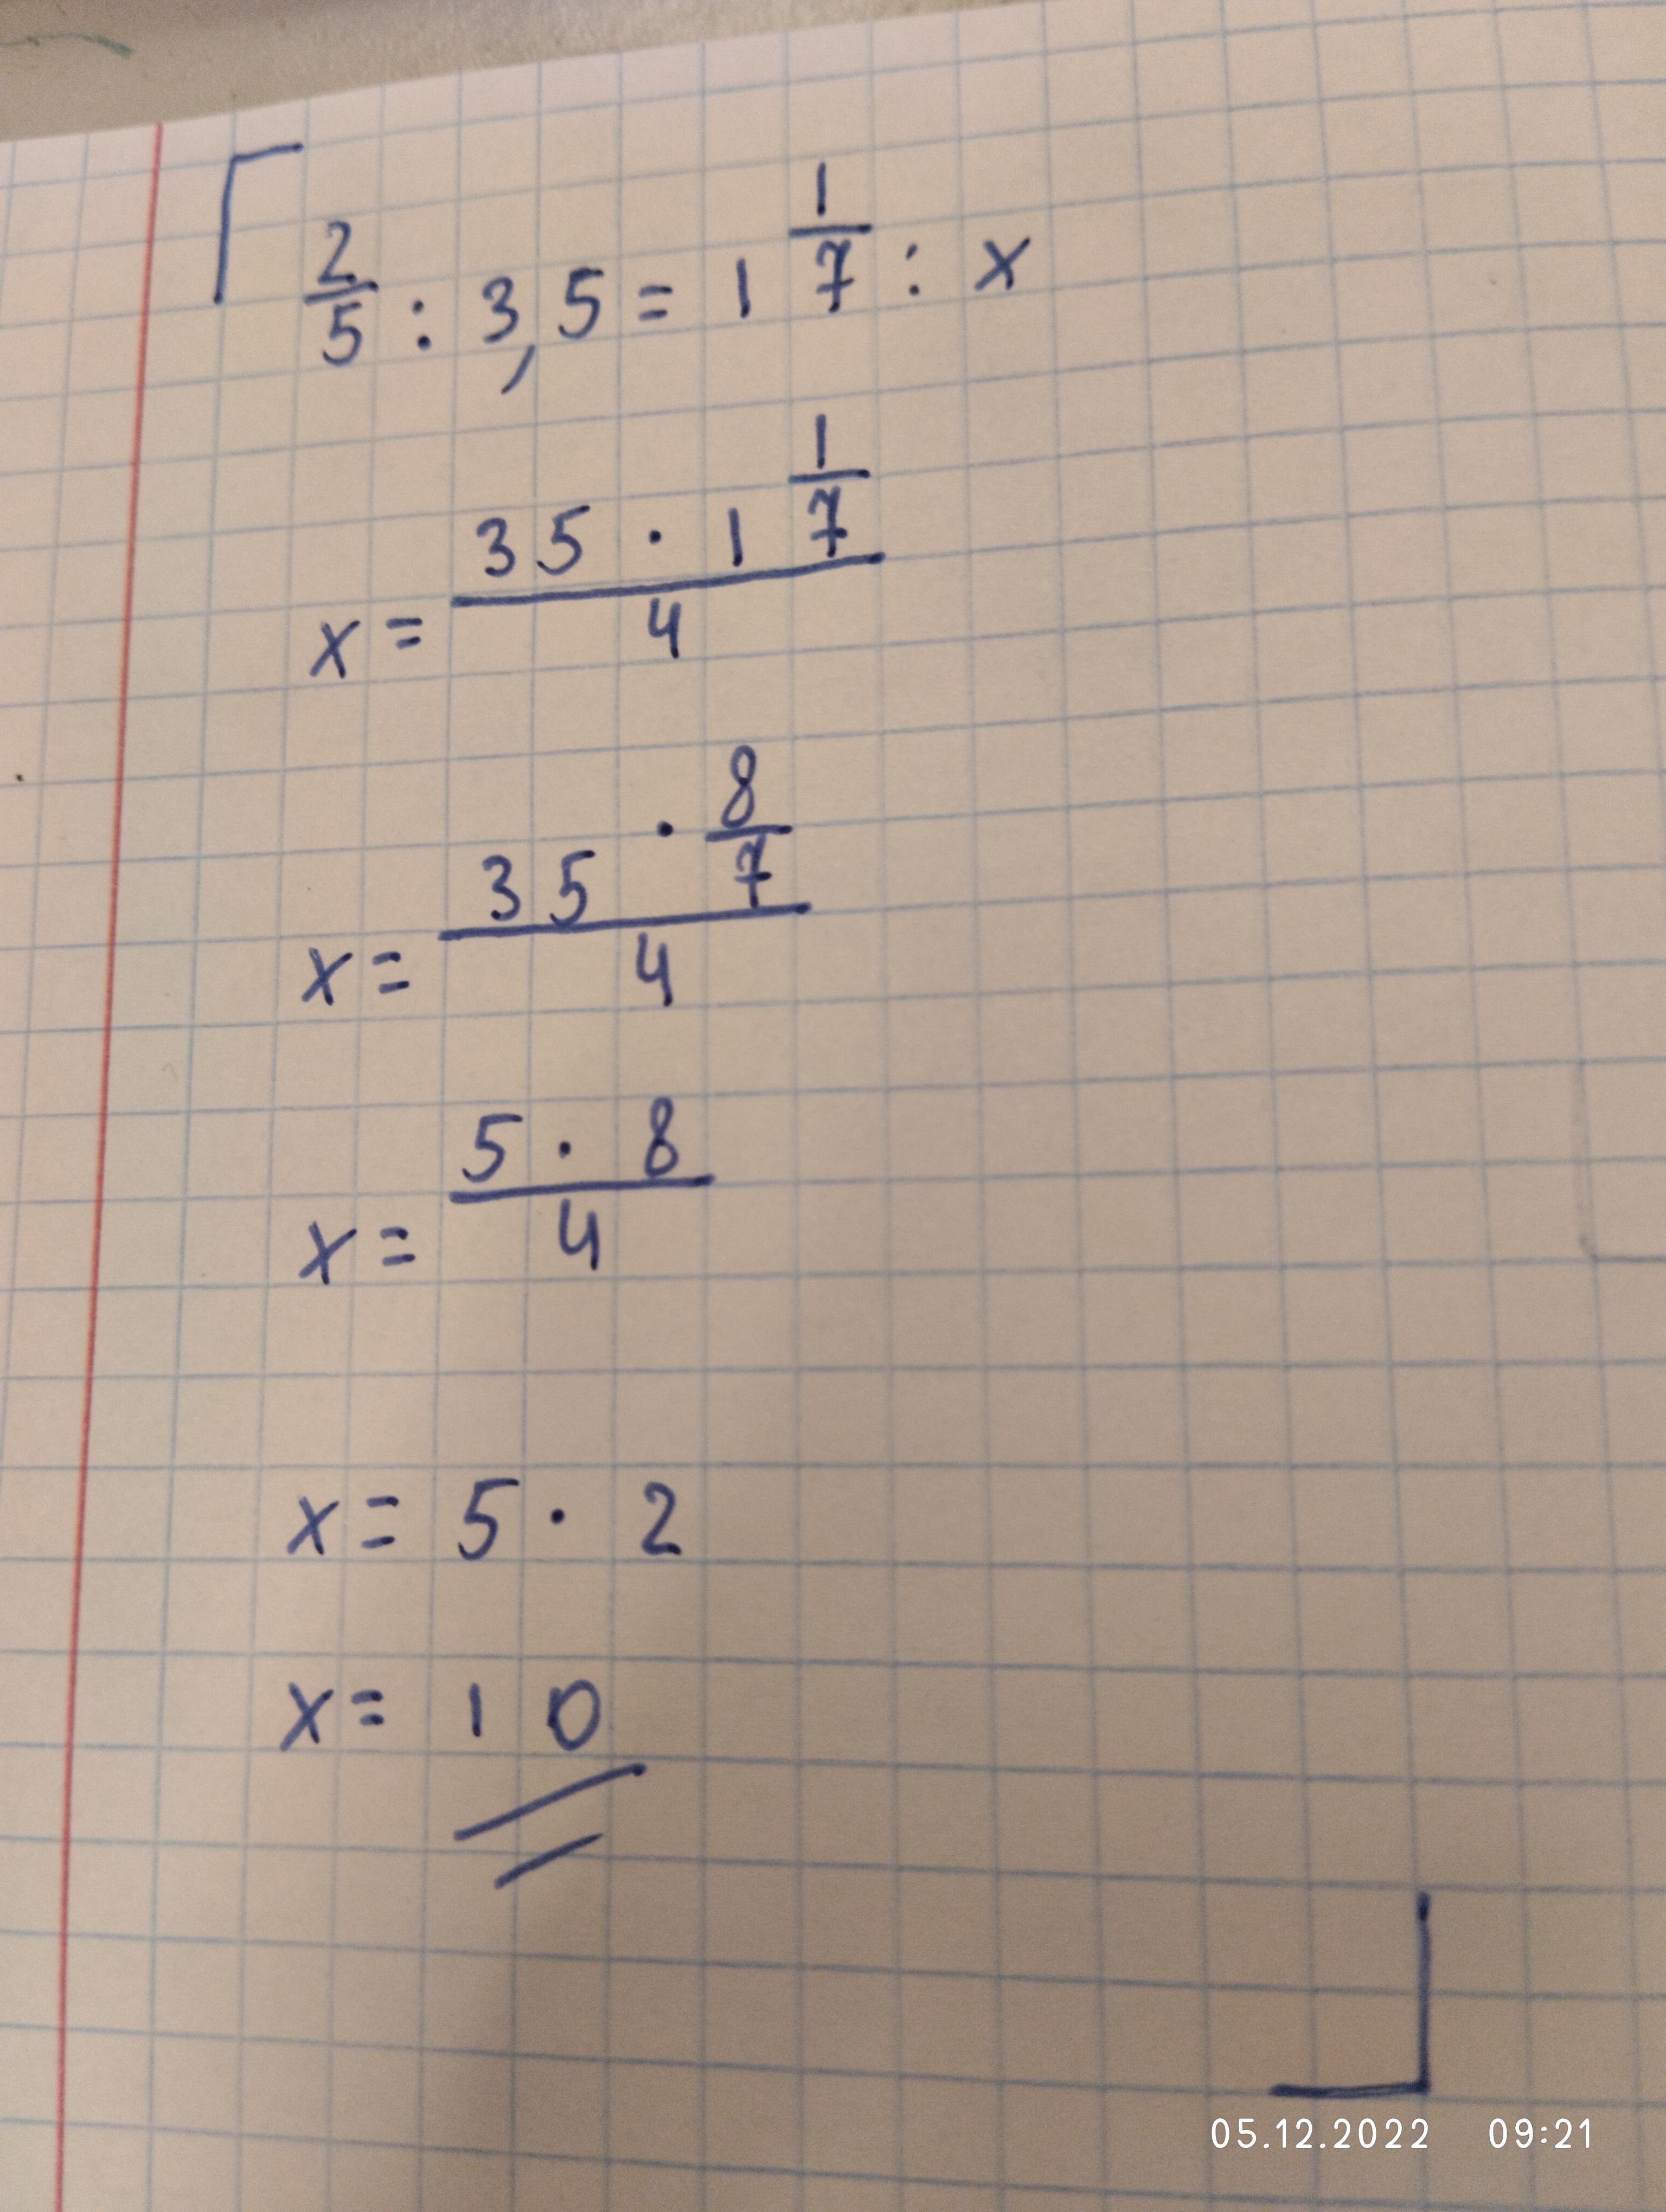 2/5 : 3,5 = 1 1/7 : x
x = (35 · 1 1/7)/4
x = (35 · 8/7)/4
x = (5 · 8)/4
x = 5 · 2
x = 10
05.12.2022 09:21